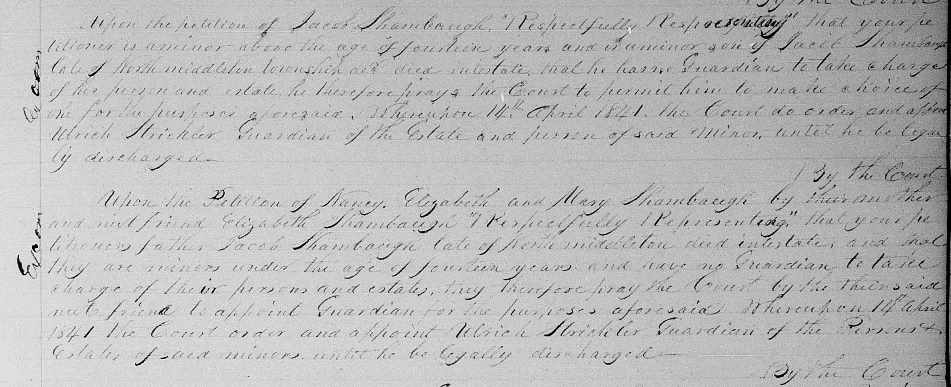 By the Court
Upon the petition of Jacob Shambaugh "Respectfully Representing" that your pe
titioner is a minor above the age of fourteen years and is a minor son of Jacob Shambaugh
late of North middleton township decd died intestate, that he has no Guardian to take charge
of his person and estate, he therefore prays the Court to permit him to make choice of
one for the purposes aforesaid. Whereupon 14th April 1841. the Court do order and appoint
Ulrich Strickler Guardian of the Estate and person of said Minor, until he be lega
lly discharged
By the Court
Exam
Upon the Petition of Nancy, Elizabeth and Mary Shambaugh by their mother
and next friend Elizabeth Shambaugh "Respectfully Representing", that your pe
titioners father Jacob Shambaugh late of North middleton died intestate, and that
they are minors under the age of fourteen years and have no Guardian to take
charge of their persons and estates, they therefore pray the Court by the their said
next friend to appoint Guardian for the purposes aforesaid Whereupon 14th April
1841 the Court order and appoint Ulrich Strickler Guardian of the Persons &
Estates of said minors until he be legally discharged
Exam
By the Court